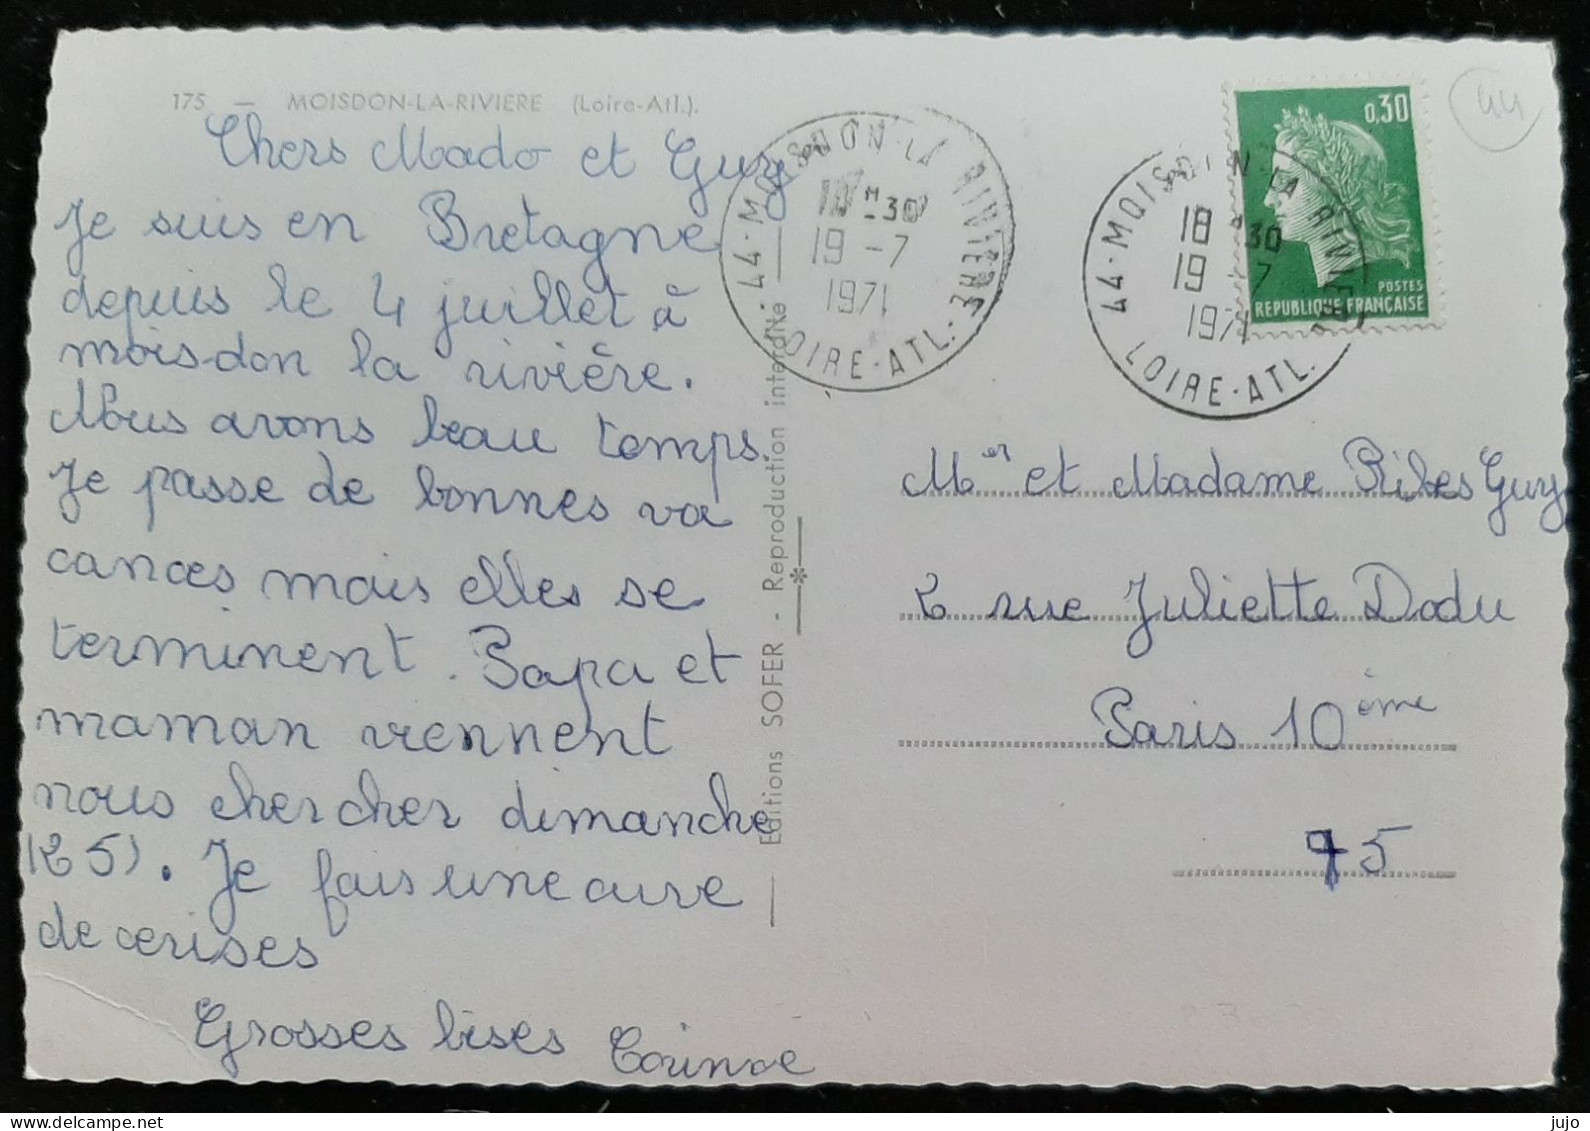 175 — MOISDON-LA-RIVIERE (Loire-Atl.).
Chers Mado et Guy
Je suis en Bretagne
depuis le 4 juillet à
mois-don la rivière.
Nous avons beau temps.
Je passe de bonnes va
cances mais elles se
terminent. Papa et
maman viennent
nous chercher dimanche
(25). Je fais une cure
de cerises
Grosses bises Corinne
Editions SOFER - Reproduction interdite
44 - MOISDON-LA RIVIERE
18 H -30
19 -7
1971
LOIRE-ATL.
44 - MOISDON-LA RIVIERE
18 H 30
19 -7
1971
LOIRE-ATL.
0,30
POSTES
REPUBLIQUE FRANÇAISE
44
Mer et Madame Ribes Guy
2 rue Juliette Dodu
Paris 10ème
75
www.delcampe.net
jujo